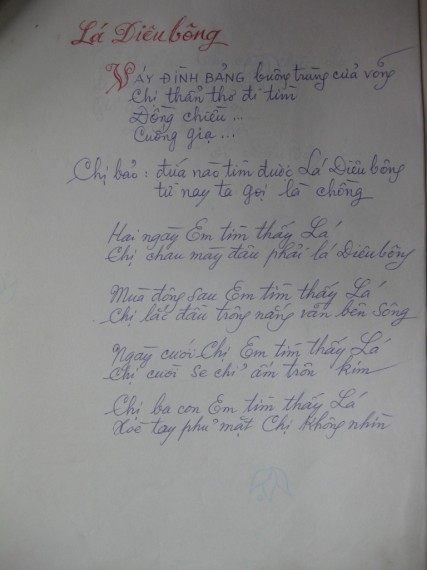 Lá Diêu bông
VÁY ĐÌNH BẢNG buông trùng cửa võng
Chị thẩn thơ đi tìm
Đồng chiều ...
Cuống rạ ...
Chị bảo: đứa nào tìm được Lá Diêu bông
từ nay ta gọi là chồng
Hai ngày Em tìm thấy Lá
Chị chau mày đâu phải lá Diêu bông
Mùa đông sau Em tìm thấy Lá
Chị lắc đầu trông nắng vãn bên sông
Ngày cưới Chị Em tìm thấy Lá
Chị cười se chỉ ấm trôn kim
Chị ba con Em tìm thấy Lá
Xòe tay phủ mặt Chị không nhìn